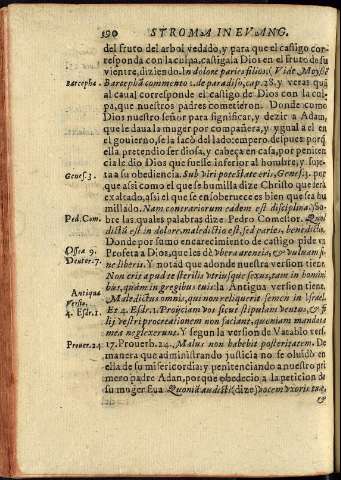 390 STROMA IN EVANG.
del fruto del arbol vedado, y para que el castigo cor-
responda con la culpa, castigala Dios en el fruto de su
vientre, diziendo. In dolore paries filios. (Vide Moysē
Barcepha. Barcephā commento 1. de paradiso, cap. 28. y veras quā
al caual corresponde el castigo de Dios con la cul-
pa, que nuestros padres cometieron. Donde como
Dios nuestro señor para significar, y dezir a Adam,
que le daua la muger por compañera, y ygual a el en
el gouierno, se la sacò del lado: empero despues porq̄
ella pretendio ser diosa, y cabeça en casa, por peniten
cia le dio Dios que fuesse inferior al hombre, y suje-
Genes. 3. ta a su obediencia. Sub viri potestate eris, Genes. 3. por
que assi como el que se humilla dize Christo que serà
exaltado, assi el que se ensoberuece es bien que sea hu
millado. Nam contrariorum eadem est disciplina. So-
Ped. Com. bre las quales palabras dize Pedro Comestor. Quod
dictū est in dolore, maledictio est, sed paries, benedictio.
Donde por sumo encarecimiento de castigo pide el
Osea 9. Profeta a Dios, que les dè vbera arentia, & vuluam si-
Deuter. 7. ne liberis. Y notad que adonde nuestra version tiene
Non erit apud te sterilis vtriusque sexus, tam in homini
bus, quàm in gregibus tuis: la Antigua version tiene.
Antiqua Versio. Maledictus omnis, qui non reliquerit semen in Israel.
4. Esdr. 1. Et 4. Esdr. 1. Projciam vos sicut stipulam ventus, & fi
lij vestri procreationem non faciant, quoniam mandata
mea neglexerunt. Y segun la version de Vatablo vers.
Prouer. 24. 17. Prouerb. 24. Malus non habebit posteritatem. De
manera que administrando justicia no se oluidò en
ella de su misericordia: y penitenciando a nuestro pri
mero padre Adan, porque obedecio a la peticion de
su muger Eua Quoniā audisti (dize) vocem vxoris tuæ,